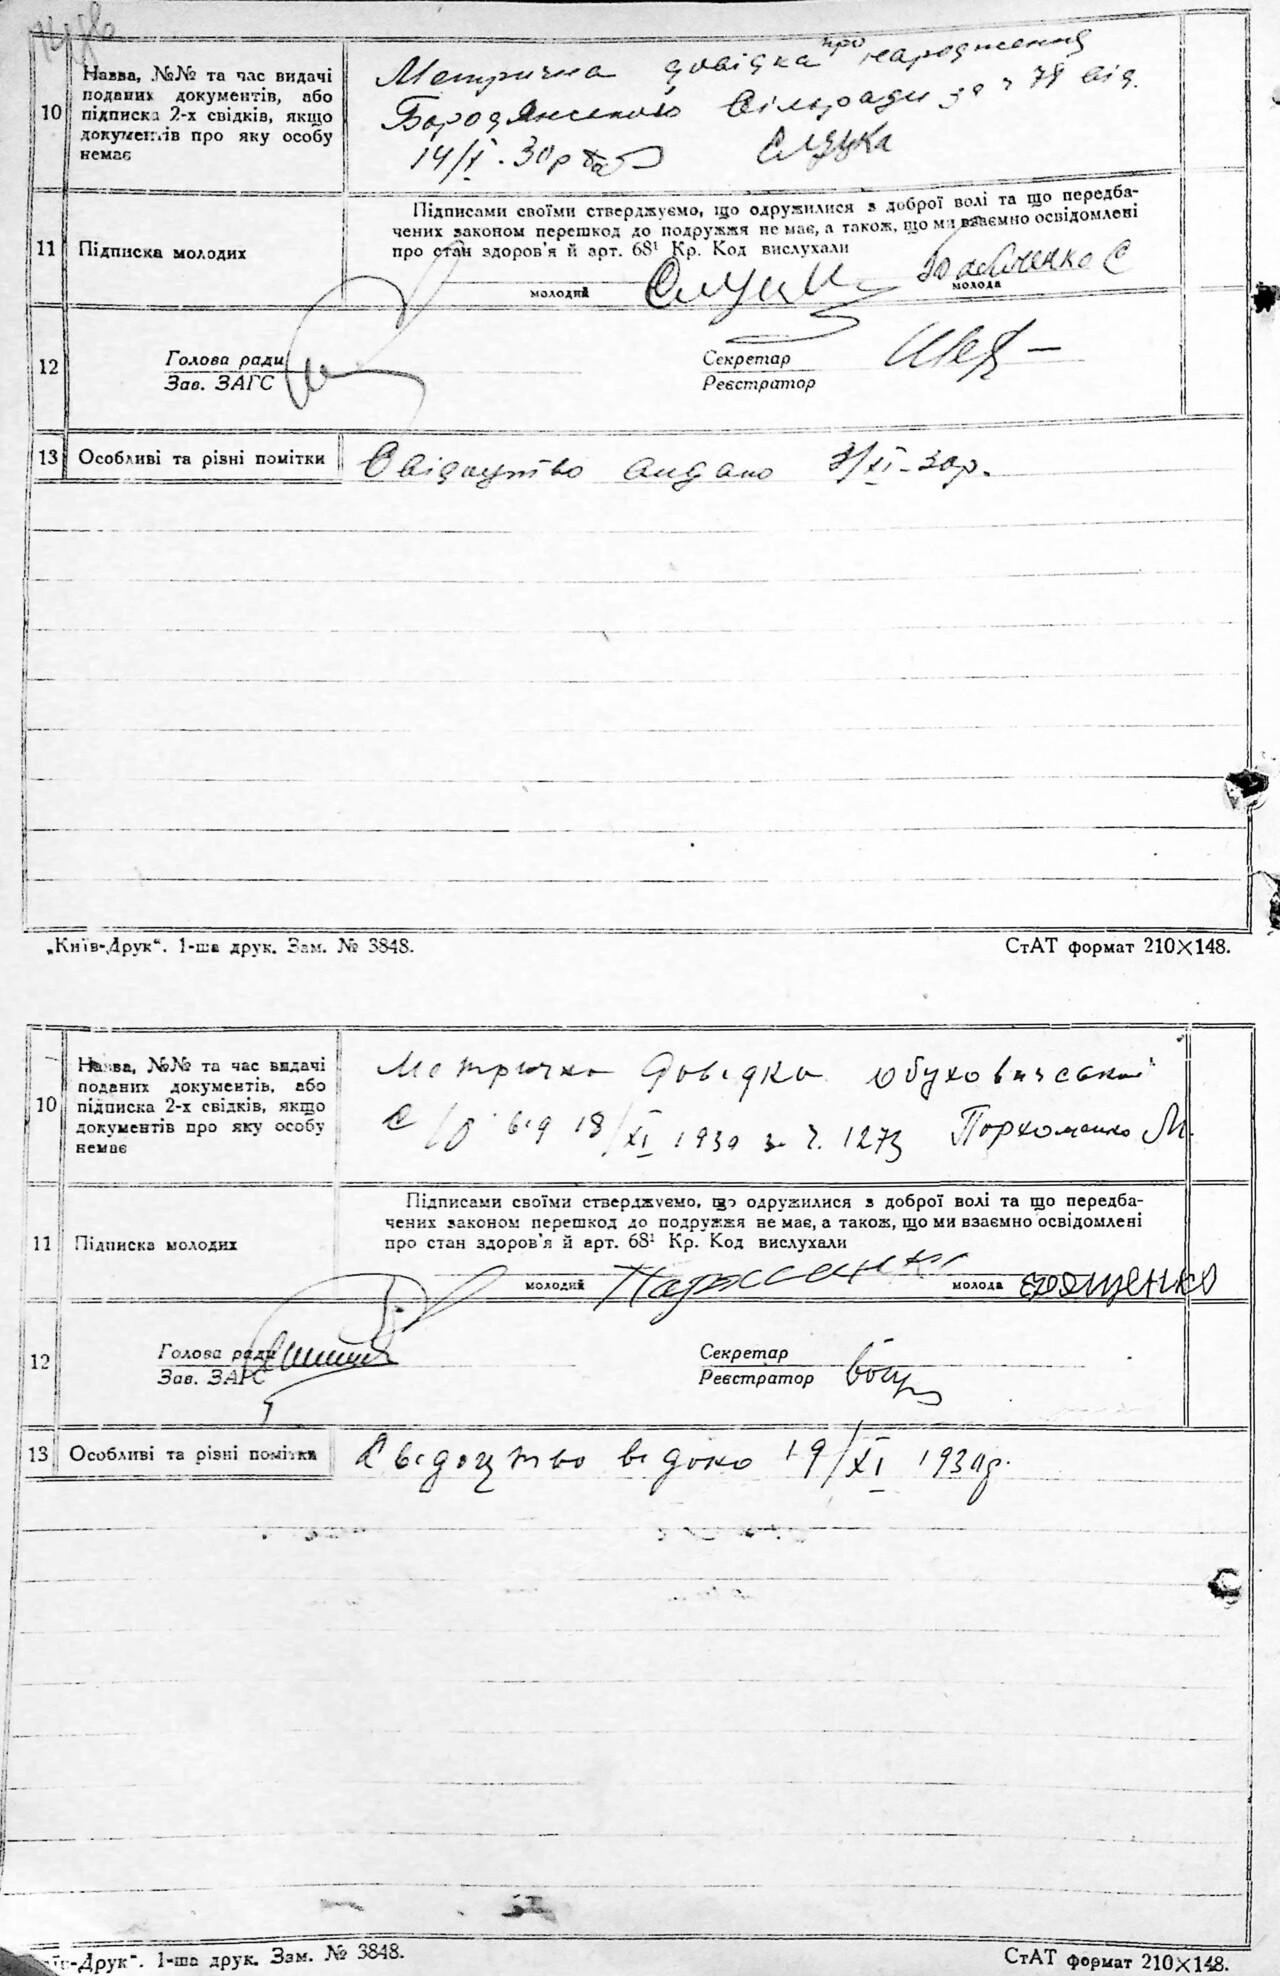 10
Назва, №№ та час видачі
поданих документів, або
підписка 2-х свідків, якщо
документів про яку особу
немає
Метрична довідка про народження
Бородянської Сільради за ч 79 від.
14/X - 30р
Слуцка
11
Підписка молодих
Підписами своїми стверджуємо, що одружилися з доброї волі та що передба-
чених законом перешкод до подружжя не має, а також, що ми взаємно освідомлені
про стан здоров'я й арт. 68¹ Кр. Код вислухали
молодий
молода
12
Голова ради
Зав. ЗАГС
Секретар
Реєстратор
13
Особливі та різні помітки
Свідоцтво видано 3/XI-30р.
„Київ-Друк“. 1-ша друк. Зам. № 3848.
СтАТ формат 210×148.
10
Назва, №№ та час видачі
поданих документів, або
підписка 2-х свідків, якщо
документів про яку особу
немає
Метрична довідка Обуховичської
С/р від 18/XI 1930 за ч. 1273 Пархоменко М.
11
Підписка молодих
Підписами своїми стверджуємо, що одружилися з доброї волі та що передба-
чених законом перешкод до подружжя не має, а також, що ми взаємно освідомлені
про стан здоров'я й арт. 68¹ Кр. Код вислухали
молодий
молода
12
Голова ради
Зав. ЗАГС
Секретар
Реєстратор
13
Особливі та різні помітки
Свідоцтво відоно 19/XI 1930р.
їв-Друк“. 1-ша друк. Зам. № 3848.
СтАТ формат 210×148.